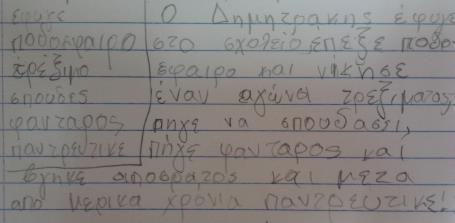 έφυγε Ο Δημητράκης έφυγε
ποδόσφαιρο στο σχολείο, έπεξε ποδο-
τρέξιμο σφαιρο και νίκησε
σπουδές έναν αγώνα τρεξίματος,
φαντάρος πήγε να σπουδάσει,
παντρεύτικε πήγε φαντάρος και
βγήκε απόσρατος και μετά
από μερικά χρόνια παντρεύτικε!